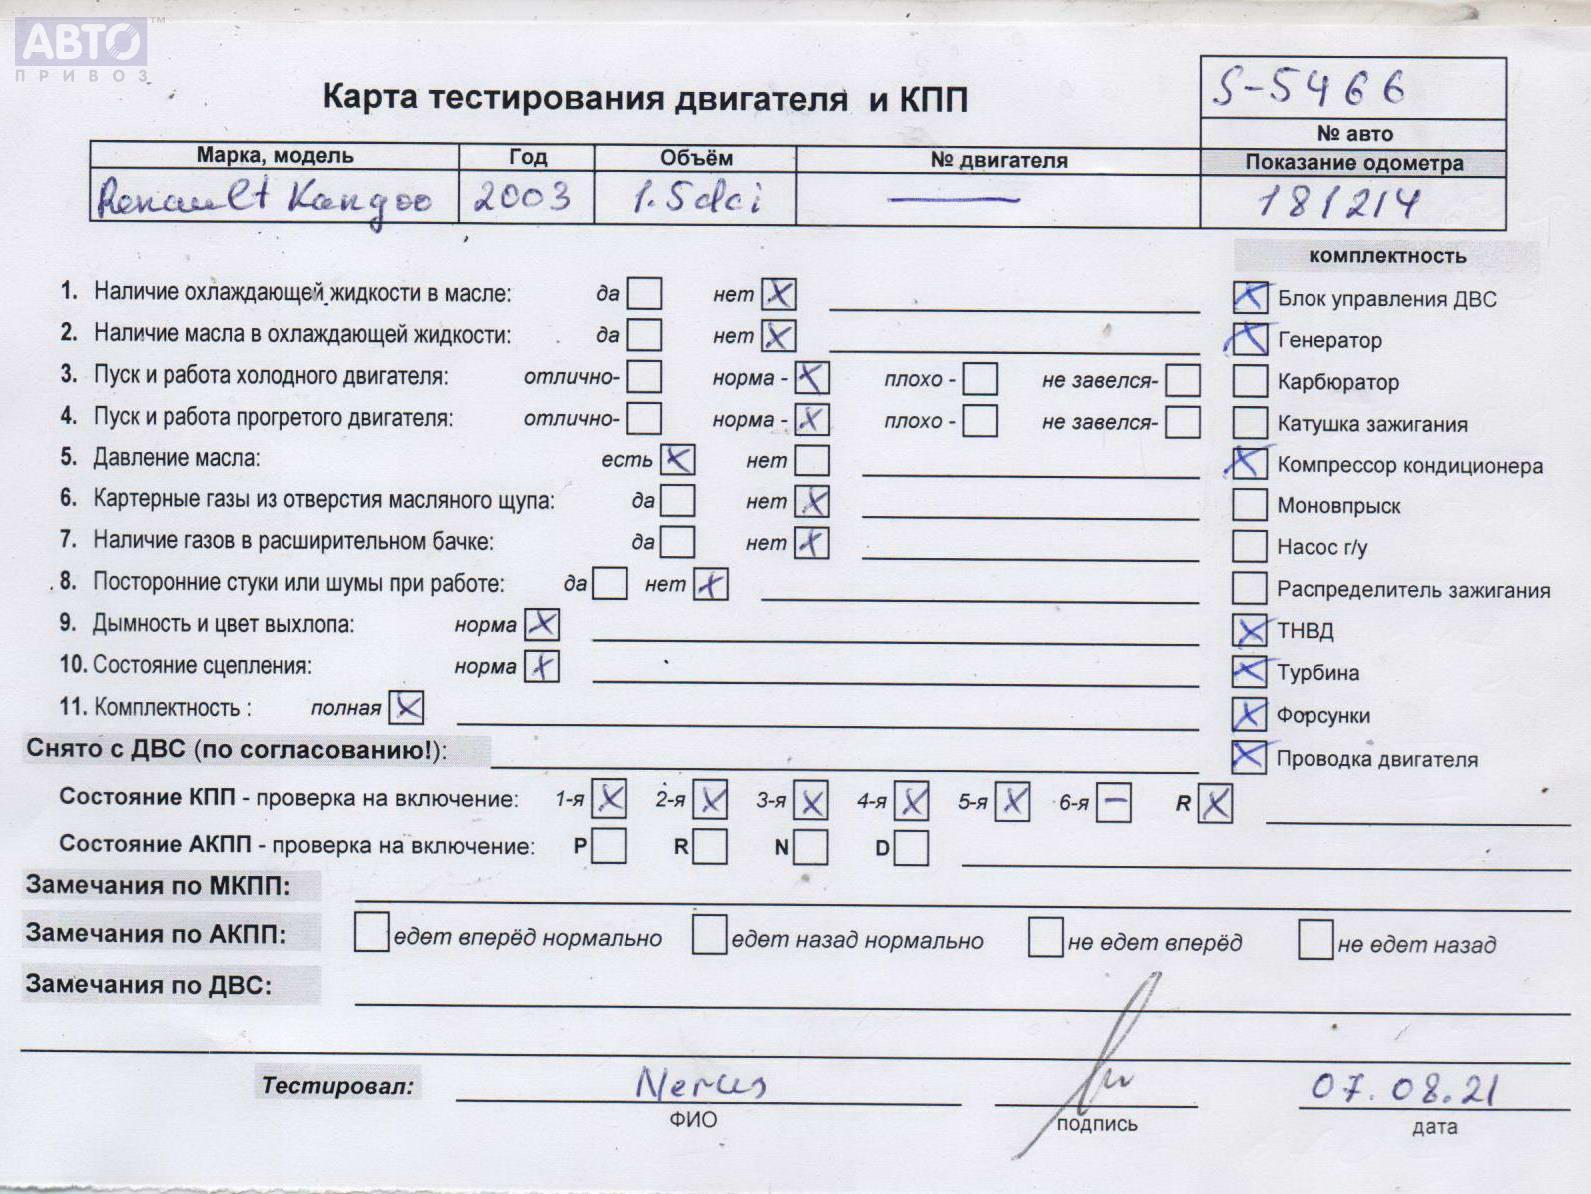 АВТО™
ПРИВОЗ
S-5466
Карта тестирования двигателя и КПП
№ авто
Марка, модель Год Объём № двигателя Показание одометра
Renault Kangoo 2003 1.5dci — 181214
комплектность
1. Наличие охлаждающей жидкости в масле: да нет X
X Блок управления ДВС
2. Наличие масла в охлаждающей жидкости: да нет X
X Генератор
3. Пуск и работа холодного двигателя: отлично- норма - X плохо - не завелся-
Карбюратор
4. Пуск и работа прогретого двигателя: отлично- норма - X плохо - не завелся-
Катушка зажигания
5. Давление масла: есть X нет
X Компрессор кондиционера
6. Картерные газы из отверстия масляного щупа: да нет X
Моновпрыск
7. Наличие газов в расширительном бачке: да нет X
Насос г/у
8. Посторонние стуки или шумы при работе: да нет X
Распределитель зажигания
9. Дымность и цвет выхлопа: норма X
X ТНВД
10. Состояние сцепления: норма X
X Турбина
11. Комплектность : полная X
X Форсунки
Снято с ДВС (по согласованию!):
X Проводка двигателя
Состояние КПП - проверка на включение: 1-я X 2-я X 3-я X 4-я X 5-я X 6-я – R X
Состояние АКПП - проверка на включение: P R N D
Замечания по МКПП:
Замечания по АКПП: едет вперёд нормально едет назад нормально не едет вперёд не едет назад
Замечания по ДВС:
Тестировал: 07.08.21
ФИО подпись дата